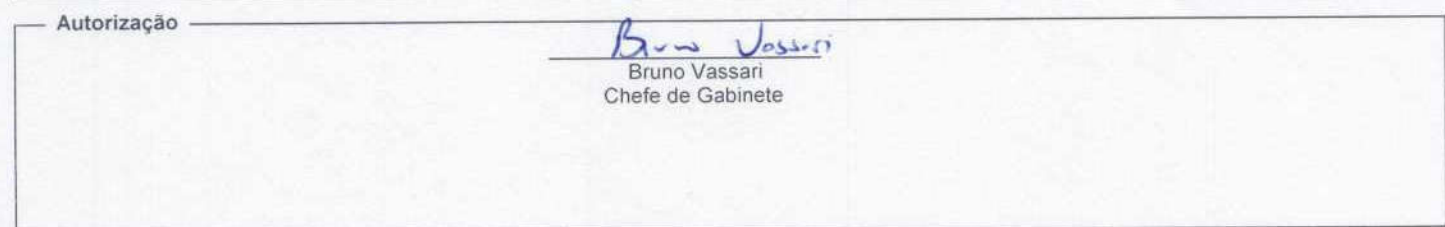 Autorização
Bruno Vassari
Bruno Vassari
Chefe de Gabinete